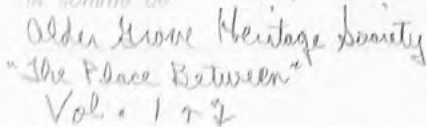 Alder Grove Heritage Society
"The Place Between"
Vol. 1 + 2